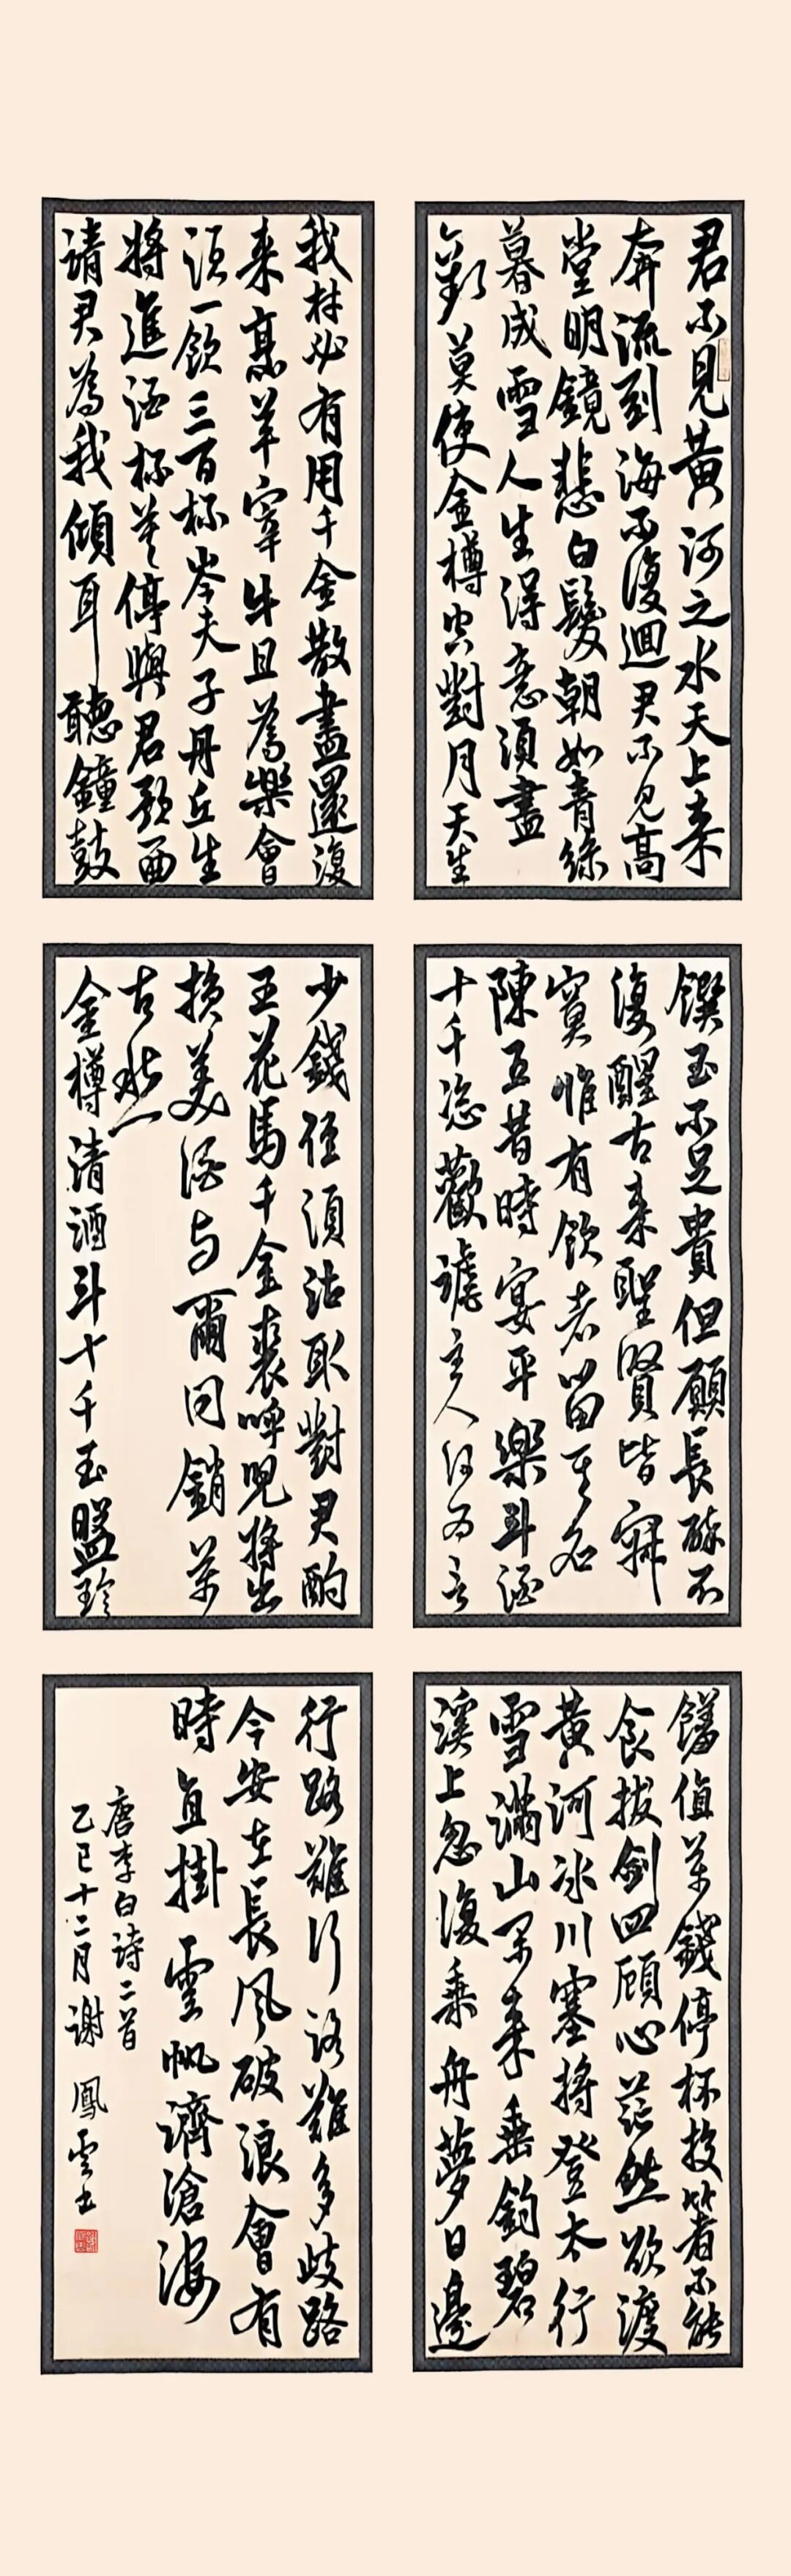 君不見黃河之水天上来
奔流到海不復迴君不見高
堂明鏡悲白髮朝如青絲
暮成雪人生得意須盡
歡莫使金樽空對月天生
我材必有用千金散盡還復
来烹羊宰牛且為樂會
須一飲三百杯岑夫子丹丘生
將進酒杯莫停與君歌一曲
請君為我傾耳聽鐘鼓
饌玉不足貴但願長醉不
復醒古来聖賢皆寂
寞惟有飲者留其名
陳王昔時宴平樂斗酒
十千恣歡謔主人何為言
少錢徑須沽取對君酌
五花馬千金裘呼兒將出
換美酒与爾同銷萬
古愁
金樽清酒斗十千玉盤珍
饈值萬錢停杯投箸不能
食拔劍四顧心茫然欲渡
黃河冰川塞將登太行
雪滿山閑来垂釣碧
溪上忽復乘舟夢日邊
行路難行路難多歧路
今安在長風破浪會有
時直掛雲帆濟滄海
唐李白诗二首
乙巳十二月謝鳳雲书